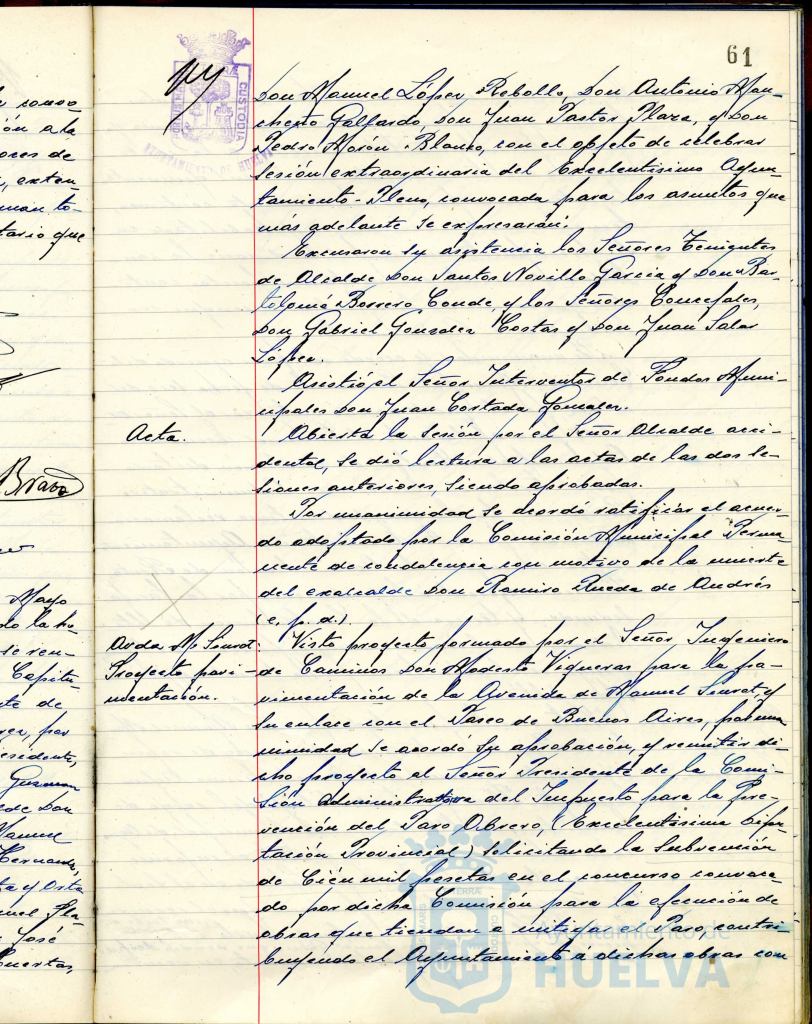 61
CUSTODIA
AYUNTAMIENTO DE HUELVA
Don Manuel López Rebollo, Don Antonio Man-
cheño Gallardo, Don Juan Pastor Plaza, y Don
Pedro Morón Blanco, con el objeto de celebrar
sesión extraordinaria del Excelentísimo Ayun-
tamiento-Pleno, convocada para los asuntos que
más adelante se expresarán.
Excusaron su asistencia los Señores Tenientes
de Alcalde Don Santos Novillo García y Don Bar-
tolomé Borrero Conde y los Señores Concejales,
Don Gabriel Gonzalez Costas y Don Juan Salas
López.
Asistió el Señor Interventor de Fondos Muni-
cipales Don Juan Cortada Gonzalez.
Acta.
Abierta la sesión por el Señor Alcalde acci-
dental, se dió lectura a las actas de las dos se-
siones anteriores, siendo aprobadas.
Por unanimidad se acordó ratificar el acuer-
do adoptado por la Comisión Municipal Perma-
nente de condolencia con motivo de la muerte
del exalcalde Don Ramiro Rueda de Andrés
(e. p. d.).
Avda M. Siurot.
Proyecto pavi-
mentación.
Visto proyecto formado por el Señor Ingeniero
de Caminos Don Modesto Vigueras para la pa-
vimentación de la Avenida de Manuel Siurot, y
su enlace con el Paseo de Buenos Aires, por una
nimidad se acordó su aprobación, y remitir di-
cho proyecto al Señor Presidente de la Comi-
sión Administradora del Impuesto para la Pre-
vención del Paro Obrero, (Excelentísima Dipu-
tación Provincial) solicitando la Subvención
de Cién mil pesetas en el concurso convoca-
do por dicha Comisión para la ejecución de
obras que tiendan a mitigar el Paro, contri
buyendo el Ayuntamiento á dichas obras con
Ayuntamiento de
HUELVA